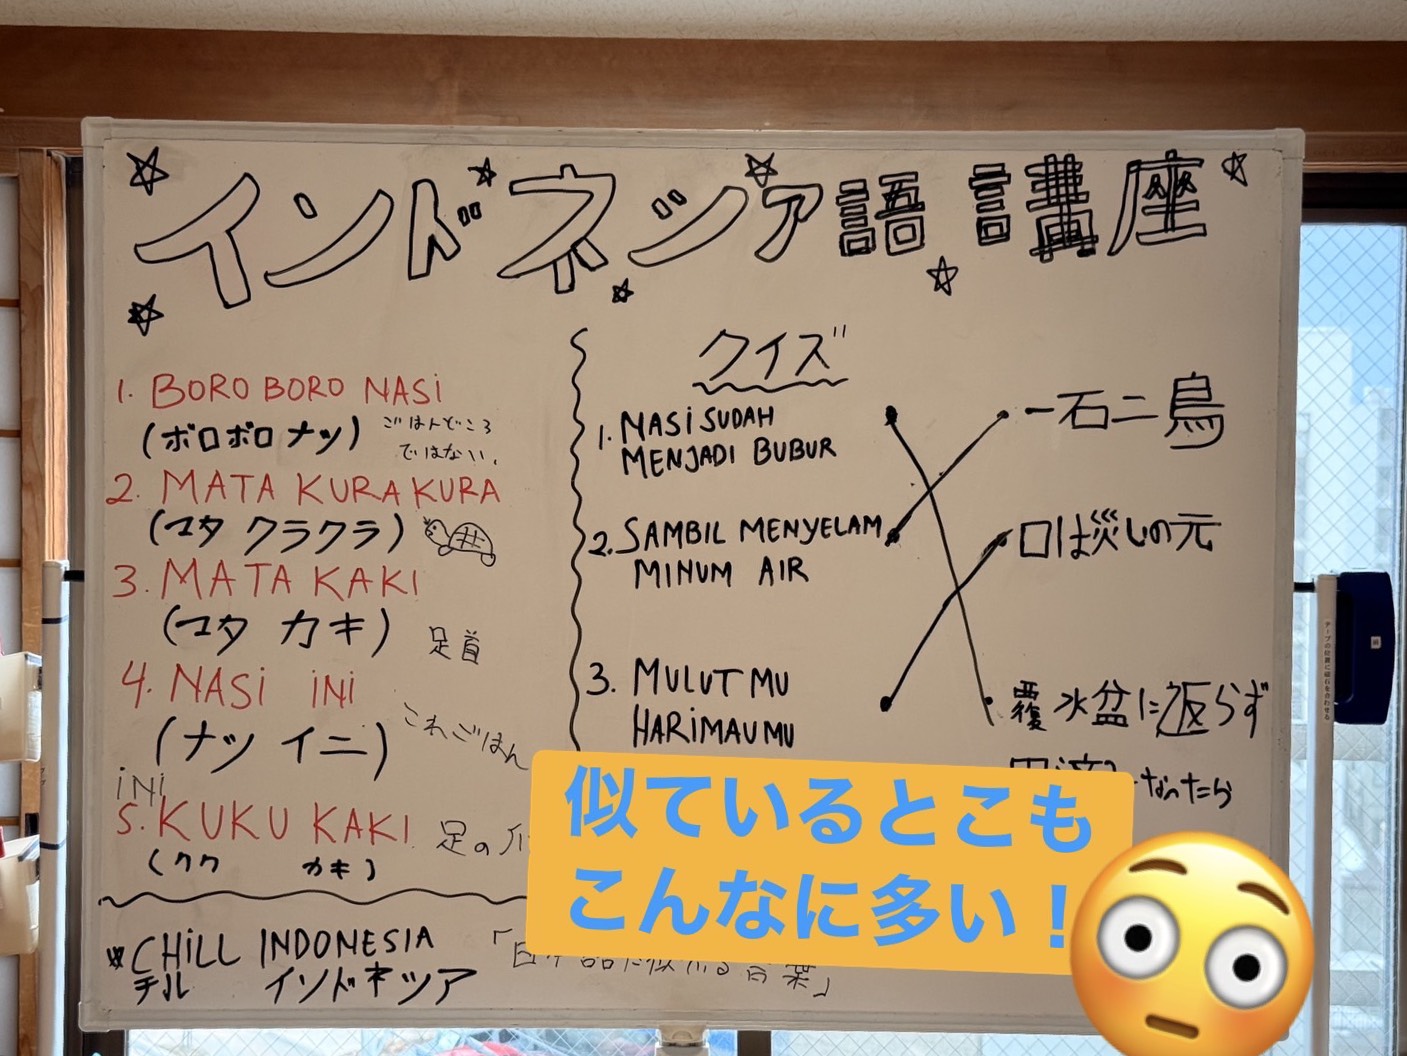 インドネシア語 講座
1. BORO BORO NASi
(ボロボロ ナシ)
ごはんどころ
ではない.
2. MATA KURA KURA
(マタ クラクラ)
3. MATA KAKI
(マタ カキ)
足首
4. NASi iNi
(ナシ イニ)
これごはん
iNi
5. KUKU KAKI
足の
(クク カキ)
クイズ
1. NASi SUDAH
MENJADI BUBUR
2. SAMBIL MENYELAM
MINUM AIR
3. MULUT MU
HARiMAU MU
一石二鳥
口は災しの元
覆水盆に返らず
なったら
似ているとこも
こんなに多い！
CHiLL INDONESIA
チル インドネシア
言葉」